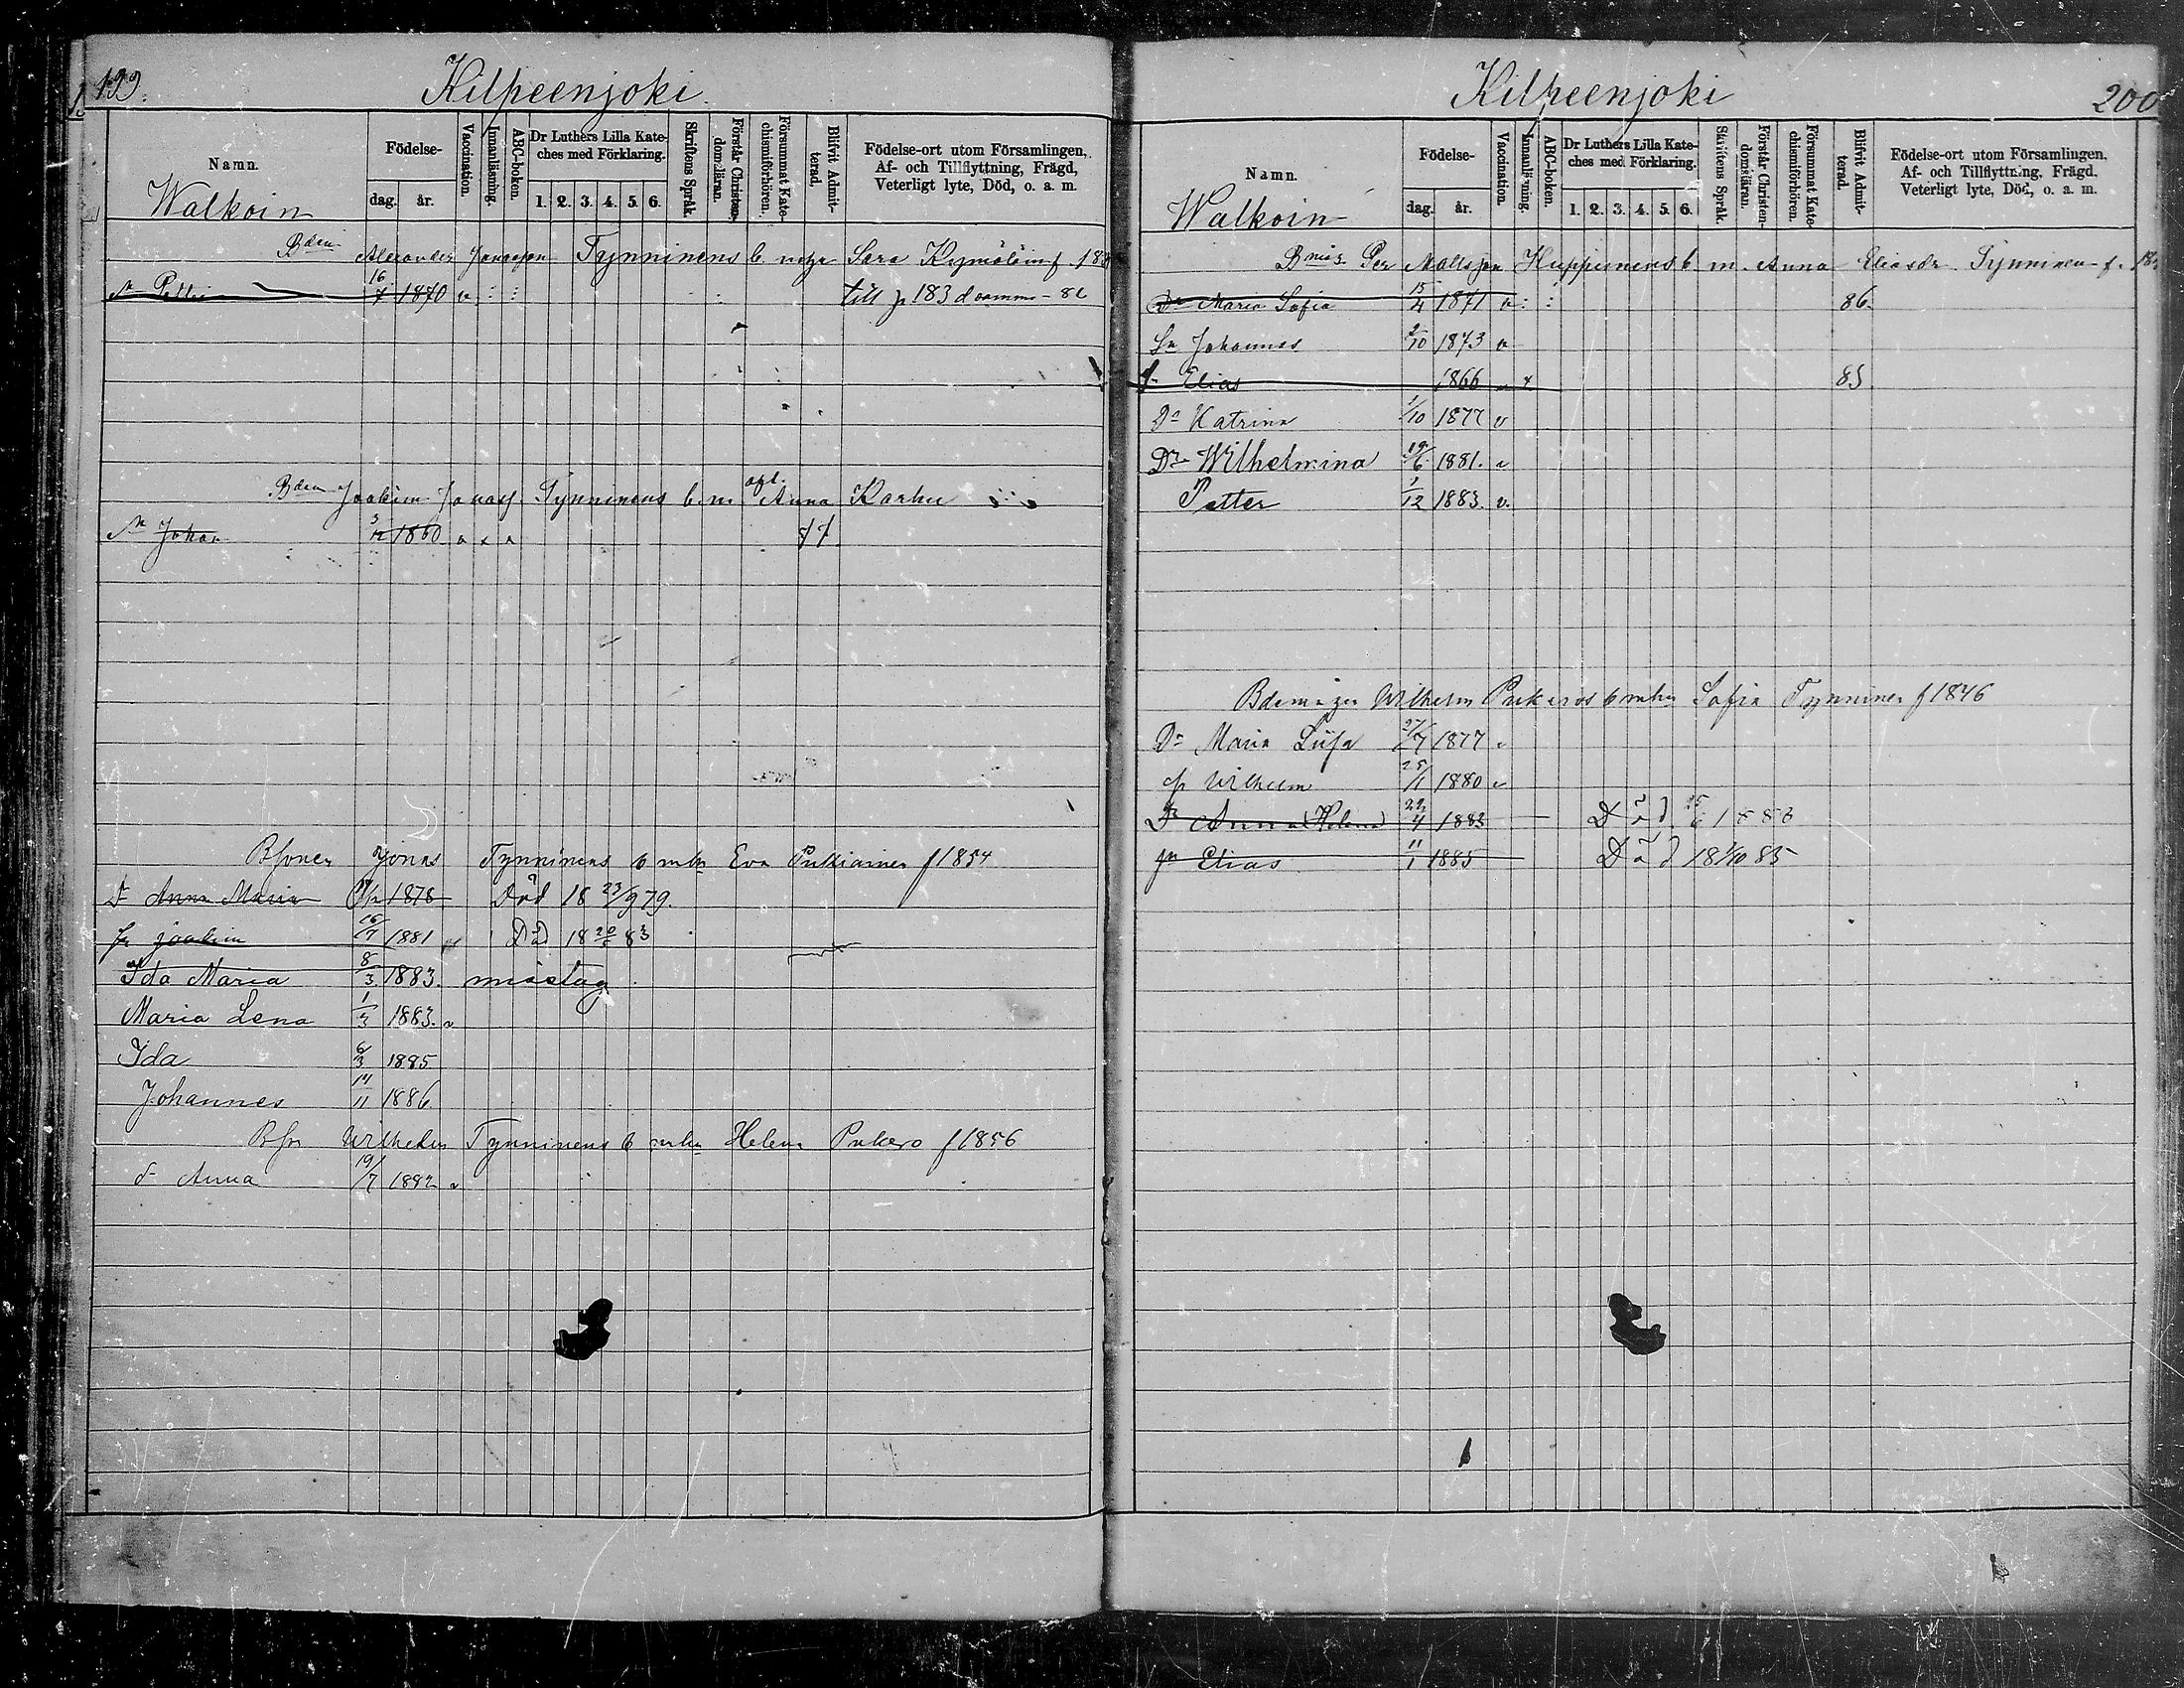 199.
Kilpeenjoki
Namn.
Födelse-
dag. år.
Vaccination.
Innanläsning.
ABC-boken.
Dr Luthers Lilla Kate-
ches med Förklaring.
1. 2. 3. 4. 5. 6.
Skriftens Språk.
Förstår Christen-
domsläran.
Försummat Kate-
chismiförhören.
Blifvit Admit-
terad.
Födelse-ort utom Församlingen,
Af- och Tillflyttning, Frägd,
Veterligt lyte, Död, o. a. m.
Walkoin
Alexander Tynninens b. Sara
16/7 1870 v till p 183
Bdern Joakim Tynninens b. m. Anna Karhu
Johan 3/12 1860
Jonas Tynninens b mhu Eva Pukiainen f 1854
Anna Maria 1878 Död 18 23/9 79.
Joakim 16/7 1881 Död 18 83
Ida Maria 8/3 1883. misstag
Maria Lena 1/3 1883. v
Ida 6/3 1885
Johannes 14/11 1886
Wilhelm Tynninens b mhu Helena Pukero f 1856
d Anna 19/7 1882 v
Kilpeenjoki
200
Namn.
Födelse-
dag. år.
Vaccination.
Innanläsning.
ABC-boken.
Dr Luthers Lilla Kate-
ches med Förklaring.
1. 2. 3. 4. 5. 6.
Skriftens Språk.
Förstår Christen-
domsläran.
Försummat Kate-
chismiförhören.
Blifvit Admit-
terad.
Födelse-ort utom Församlingen,
Af- och Tillflyttning, Frägd.
Veterligt lyte, Död, o. a. m.
Walkoin
Per Mattsson Huppinens b m. Anna Eliasdr Tynninen f.
Dr Maria Sofia 15/4 1871 v 86.
Sn Johannes 1873 v
Elias 1866 85
Dr Katrina 1/10 1877 v
Dr Wilhelmina 19/6 1881. v
Petter 1/12 1883. v.
Wilhelm Pukeros b mhu Sofia Tynninen f 1846
Dr Maria Liisa 27/7 1877 v
Wilhelm 28/1 1880 v
Anna Helena 22/4 1883 Död
Elias 11/1 1885 Död 18 1/10 85